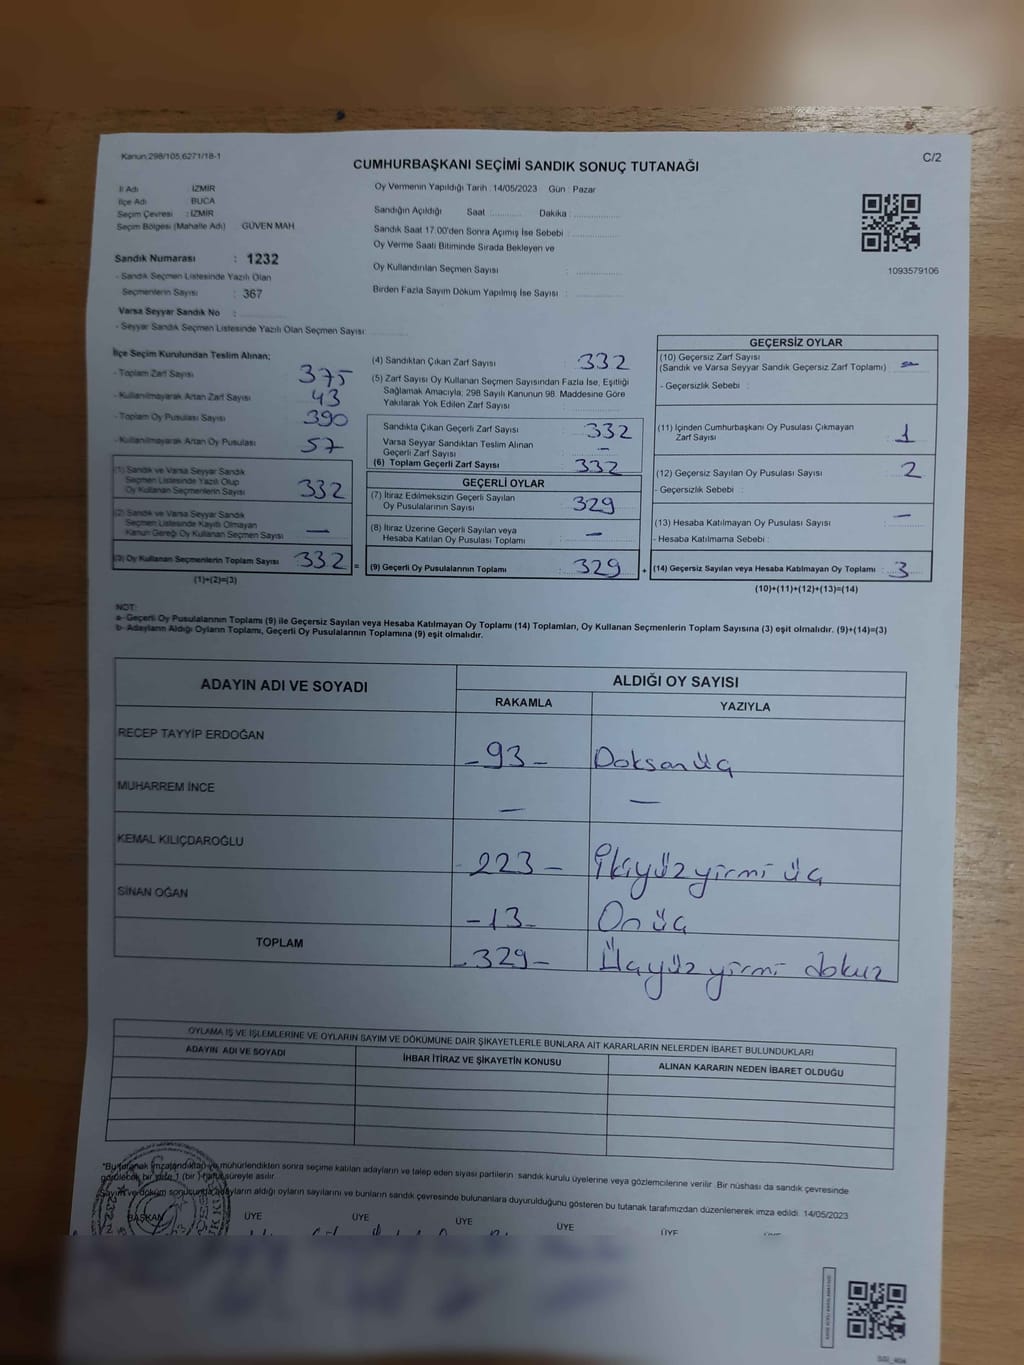 Kanun:298/105,6271/18-1
C/2
CUMHURBAŞKANI SEÇİMİ SANDIK SONUÇ TUTANAĞI
İl Adı İZMİR
İlçe Adı BUCA
Seçim Çevresi : İZMİR
Seçim Bölgesi (Mahalle Adı) GÜVEN MAH
Oy Vermenin Yapıldığı Tarih : 14/05/2023 Gün : Pazar
Sandığın Açıldığı Saat :........... Dakika :................
Sandık Saat 17.00'den Sonra Açımış İse Sebebi :................
Oy Verme Saati Bitiminde Sırada Bekleyen ve
Oy Kullandırılan Seçmen Sayısı :................
Birden Fazla Sayım Döküm Yapılmış İse Sayısı :................
1093579106
Sandık Numarası : 1232
- Sandık Seçmen Listesinde Yazılı Olan
Seçmenlerin Sayısı : 367
Varsa Seyyar Sandık No :
- Seyyar Sandık Seçmen Listesinde Yazılı Olan Seçmen Sayısı:
İlçe Seçim Kurulundan Teslim Alınan;
- Toplam Zarf Sayısı 375
- Kullanılmayarak Artan Zarf Sayısı 43
- Toplam Oy Pusulası Sayısı 390
- Kullanılmayarak Artan Oy Pusulası 57
(1) Sandık ve Varsa Seyyar Sandık
Seçmen Listesinde Yazılı Olup
Oy Kullanan Seçmenlerin Sayısı 332
(2) Sandık ve Varsa Seyyar Sandık
Seçmen Listesinde Kayıtlı Olmayan
Kanun Gereği Oy Kullanan Seçmen Sayısı —
(3) Oy Kullanan Seçmenlerin Toplam Sayısı 332 =
(1)+(2)=(3)
(4) Sandıktan Çıkan Zarf Sayısı : 332
(5) Zarf Sayısı Oy Kullanan Seçmen Sayısından Fazla İse, Eşitliği
Sağlamak Amacıyla, 298 Sayılı Kanunun 98. Maddesine Göre
Yakılarak Yok Edilen Zarf Sayısı :
Sandıkta Çıkan Geçerli Zarf Sayısı : 332
Varsa Seyyar Sandıktan Teslim Alınan
Geçerli Zarf Sayısı : —
(6) Toplam Geçerli Zarf Sayısı : 332
GEÇERLİ OYLAR
(7) İtiraz Edilmeksizin Geçerli Sayılan
Oy Pusulalarının Sayısı : 329
(8) İtiraz Üzerine Geçerli Sayılan veya
Hesaba Katılan Oy Pusulası Toplamı : —
(9) Geçerli Oy Pusulalarının Toplamı : 329 +
GEÇERSİZ OYLAR
(10) Geçersiz Zarf Sayısı
(Sandık ve Varsa Seyyar Sandık Geçersiz Zarf Toplamı) : —
- Geçersizlik Sebebi :
(11) İçinden Cumhurbaşkanı Oy Pusulası Çıkmayan
Zarf Sayısı : 1
(12) Geçersiz Sayılan Oy Pusulası Sayısı : 2
- Geçersizlik Sebebi :
(13) Hesaba Katılmayan Oy Pusulası Sayısı : —
- Hesaba Katılmama Sebebi :
(14) Geçersiz Sayılan veya Hesaba Katılmayan Oy Toplamı : 3
(10)+(11)+(12)+(13)=(14)
NOT:
a- Geçerli Oy Pusulalarının Toplamı (9) ile Geçersiz Sayılan veya Hesaba Katılmayan Oy Toplamı (14) Toplamları, Oy Kullanan Seçmenlerin Toplam Sayısına (3) eşit olmalıdır. (9)+(14)=(3)
b- Adayların Aldığı Oyların Toplamı, Geçerli Oy Pusulalarının Toplamına (9) eşit olmalıdır.
ADAYIN ADI VE SOYADI ALDIĞI OY SAYISI
RAKAMLA YAZIYLA
RECEP TAYYİP ERDOĞAN -93- Doksanüç
MUHARREM İNCE — —
KEMAL KILIÇDAROĞLU -223- İkiyüzyirmi üç
SİNAN OĞAN -13- Onüç
TOPLAM -329- Üçyüzyirmi dokuz
OYLAMA İŞ VE İŞLEMLERİNE VE OYLARIN SAYIM VE DÖKÜMÜNE DAİR ŞİKAYETLERLE BUNLARA AİT KARARLARIN NELERDEN İBARET BULUNDUKLARI
ADAYIN ADI VE SOYADI İHBAR İTİRAZ VE ŞİKAYETİN KONUSU ALINAN KARARIN NEDEN İBARET OLDUĞU
*Bu tutanak imzalandıktan ve mühürlendikten sonra seçime katılan adayların ve talep eden siyasi partilerin sandık kurulu üyelerine veya gözlemcilerine verilir. Bir nüshası da sandık çevresinde
görülecek bir yere 1 (bir) hafta süreyle asılır.
Sayım ve döküm sonucunda adayların aldığı oyların sayılarını ve bunların sandık çevresinde bulunanlara duyurulduğunu gösteren bu tutanak tarafımızdan düzenlenerek imza edildi. 14/05/2023
BAŞKAN ÜYE ÜYE ÜYE ÜYE ÜYE